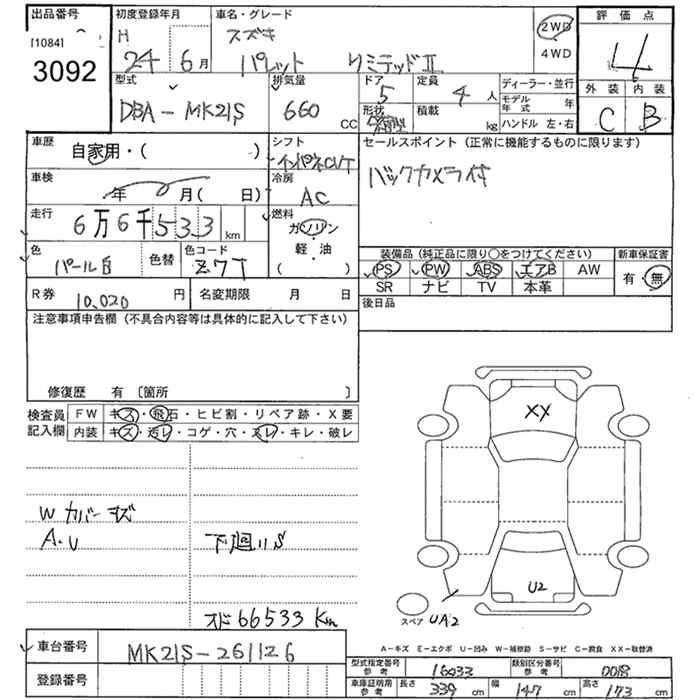 出品番号
[1084]
3092
初度登録年月
H 24 6月
車名・グレード
スズキ
パレット リミテッドⅡ
2WD
4WD
評価点
4
外装 内装
C B
型式
DBA-MK21S
排気量
660 CC
ドア
5
形状
定員
4人
積載
kg
ディーラー・並行
モデル年式 年
ハンドル 左・右
車歴
自家用・( )
シフト
インパネCVT
セールスポイント (正常に機能するものに限ります)
バックカメラ付
車検
年 月( 日)
冷房
AC
走行
6万6千533 km
燃料
ガソリン
軽・油
( )
色
パール白
色替
色コード
Z7T
装備品 (純正品に限り○をつけてください)
新車保証書
PS PW ABS エアB AW
有・無
SR ナビ TV 本革
R券
10,020 円
名変期限 月 日
後日品
注意事項申告欄 (不具合内容等は具体的に記入して下さい)
修復歴 有 〔箇所 〕
検査員記入欄
FW キズ・飛石・ヒビ割・リペア跡・X要
内装 キズ・汚レ・コゲ・穴・スレ・キレ・破レ
Wカバーキズ
A・U
下廻りS
メド 66533 Km
XX
U2
スペア
UA2
A-キズ E-エクボ U-凹み W-補修跡 S-サビ C-腐食 XX-取替済
車台番号
MK21S-261126
登録番号
型式指定番号 参考
16033
類別区分番号 参考
0018
車庫証明用 参考
長さ 339 cm 幅 147 cm 高さ 173 cm